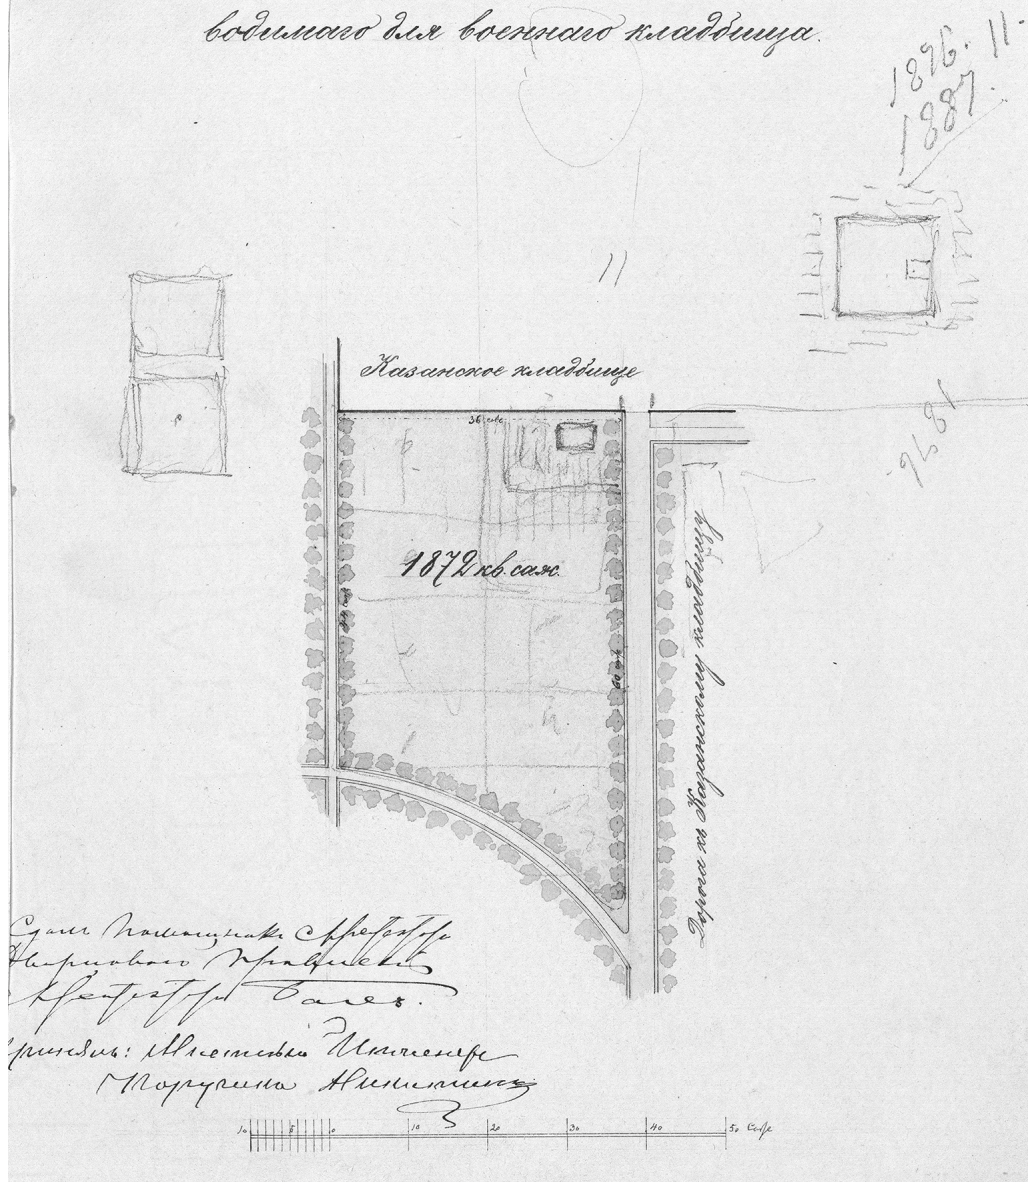 водимаго для военнаго кладбища.
1896. 11
1887.
11
Казанское кладбище
36 саж
1896
1872 кв. саж.
60 саж
Дорога къ Казанскому кладбищу
Сдалъ Помощникъ Архитектора
Дворцоваго Правленія
Архитекторъ
Принялъ: Инженеръ
Поручикъ Никитинъ
10 5 0 10 20 30 40 50 Саж